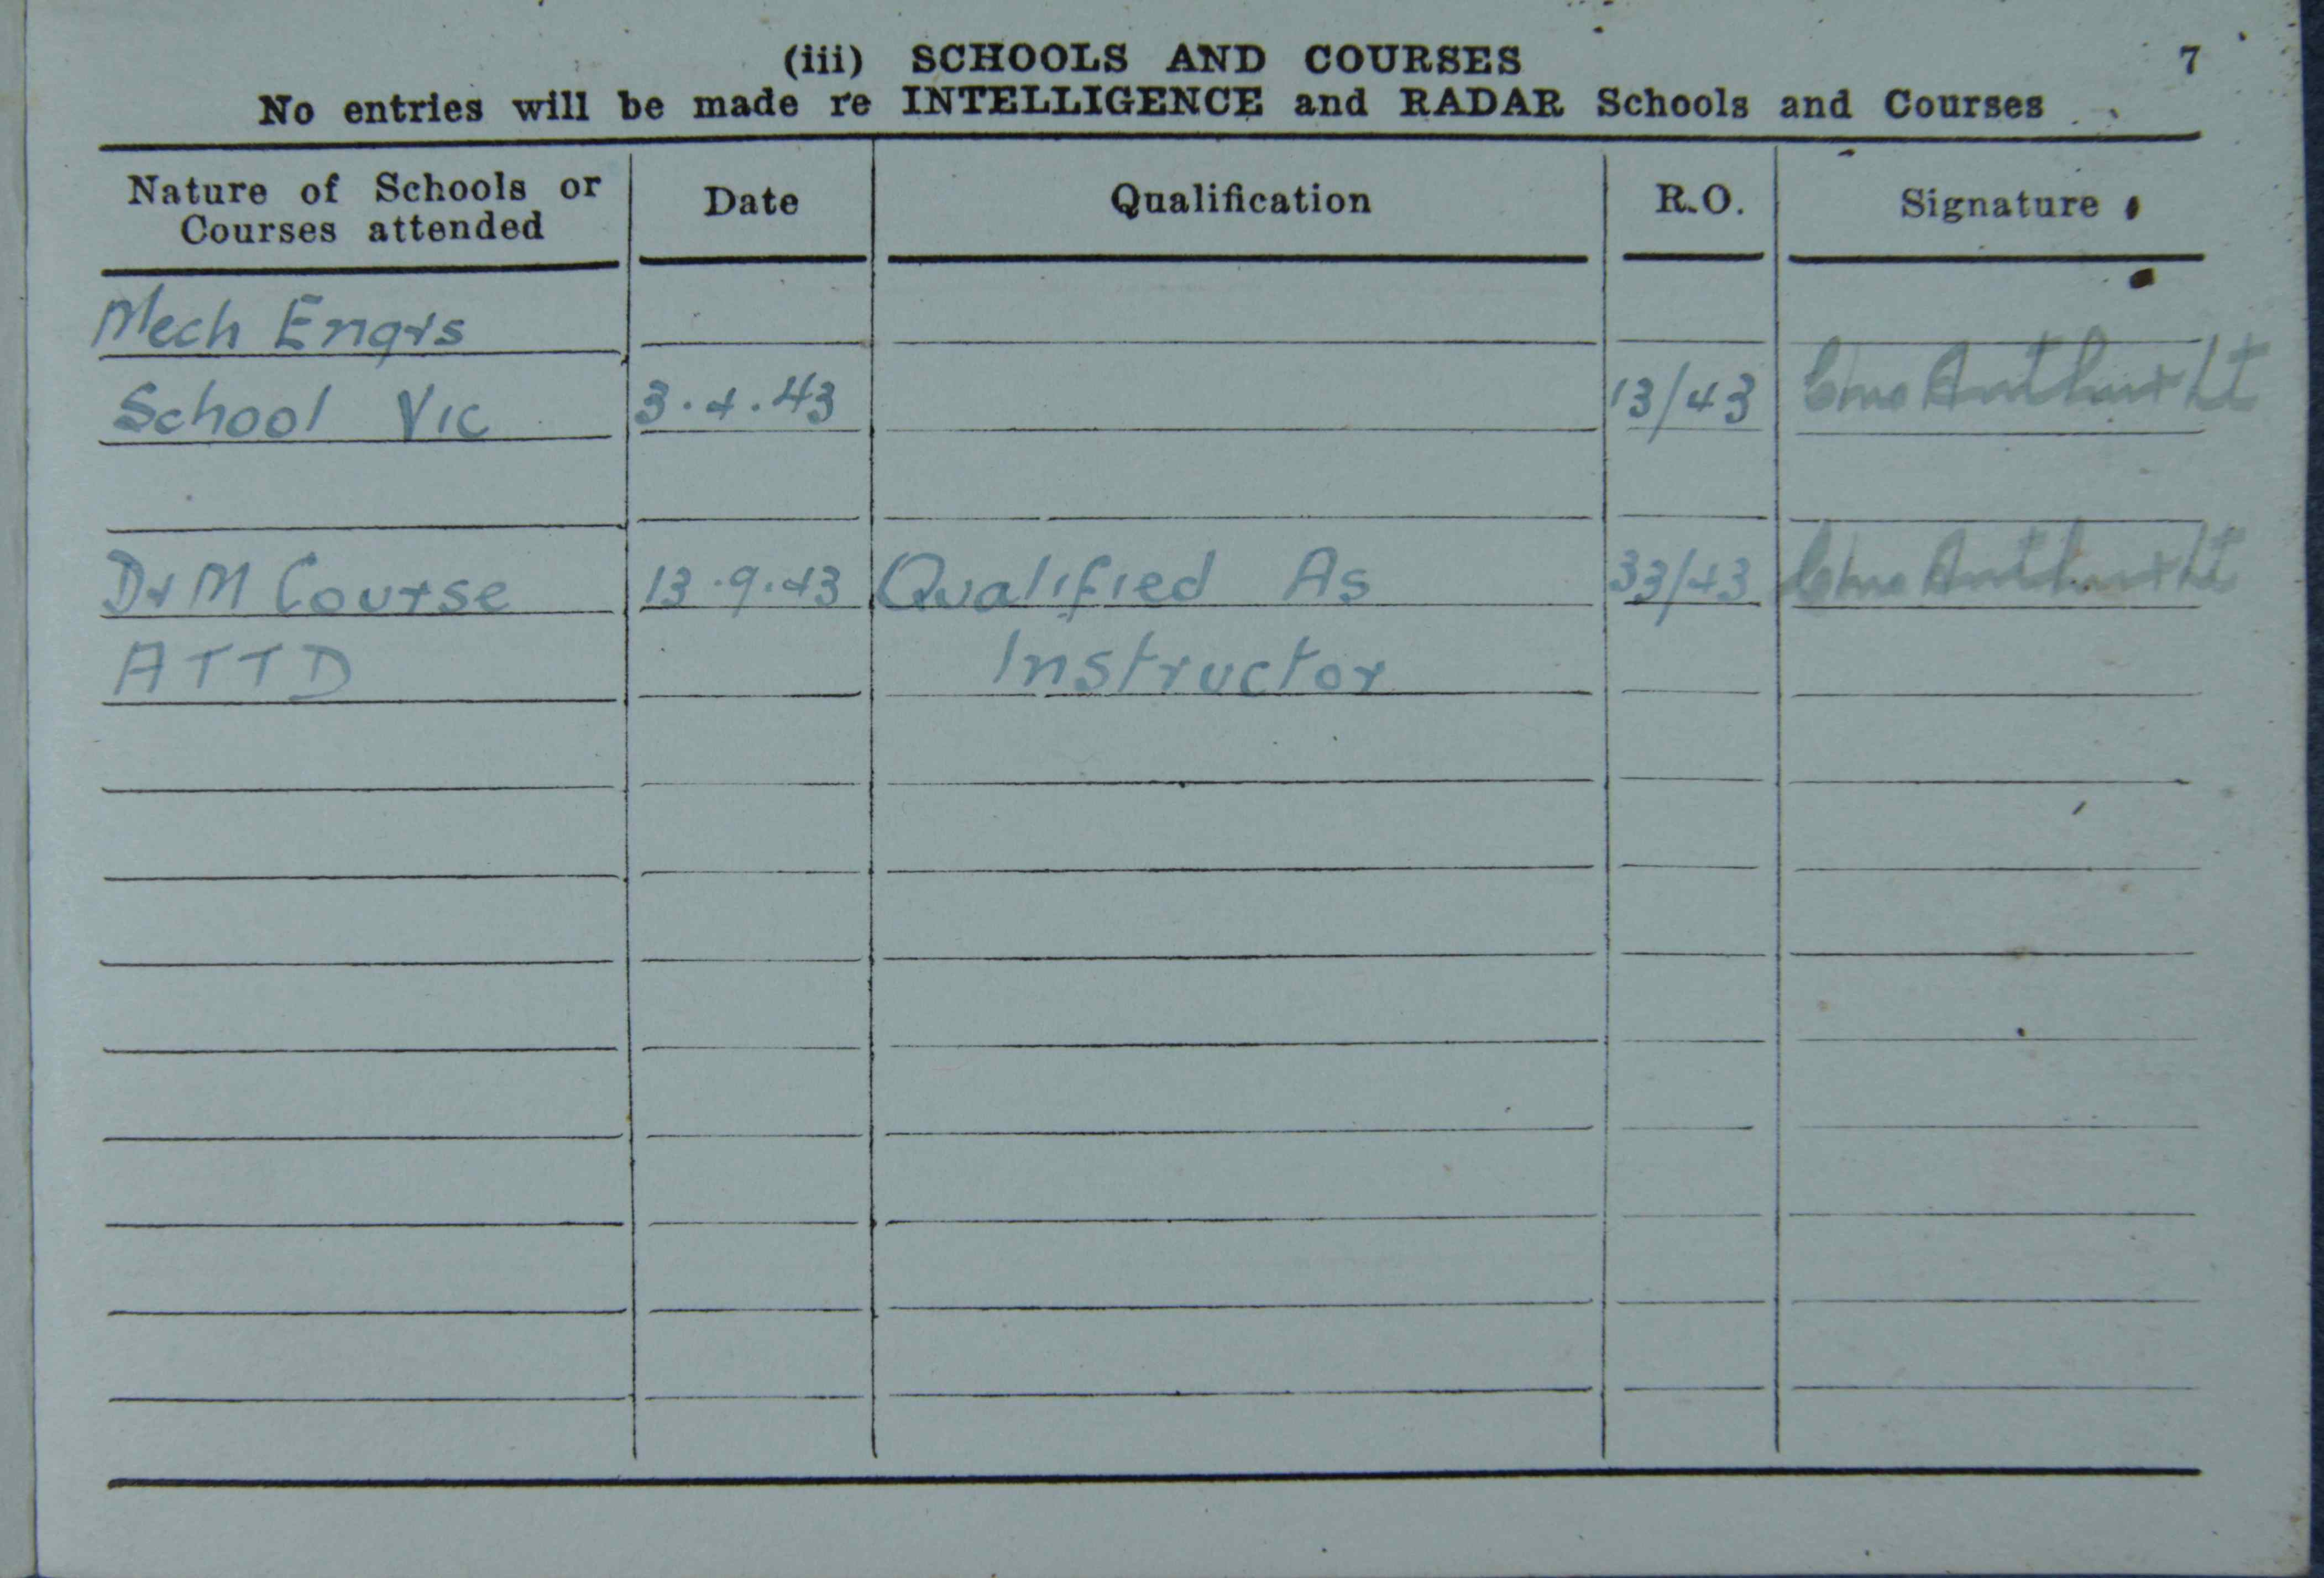 (iii) SCHOOLS AND COURSES 7
No entries will be made re INTELLIGENCE and RADAR Schools and Courses
Nature of Schools or Courses attended Date Qualification R.O. Signature
Mech Engrs
School Vic 3.4.43 13/43
D&M Course 13.9.43 Qualified As 33/43
ATTD Instructor